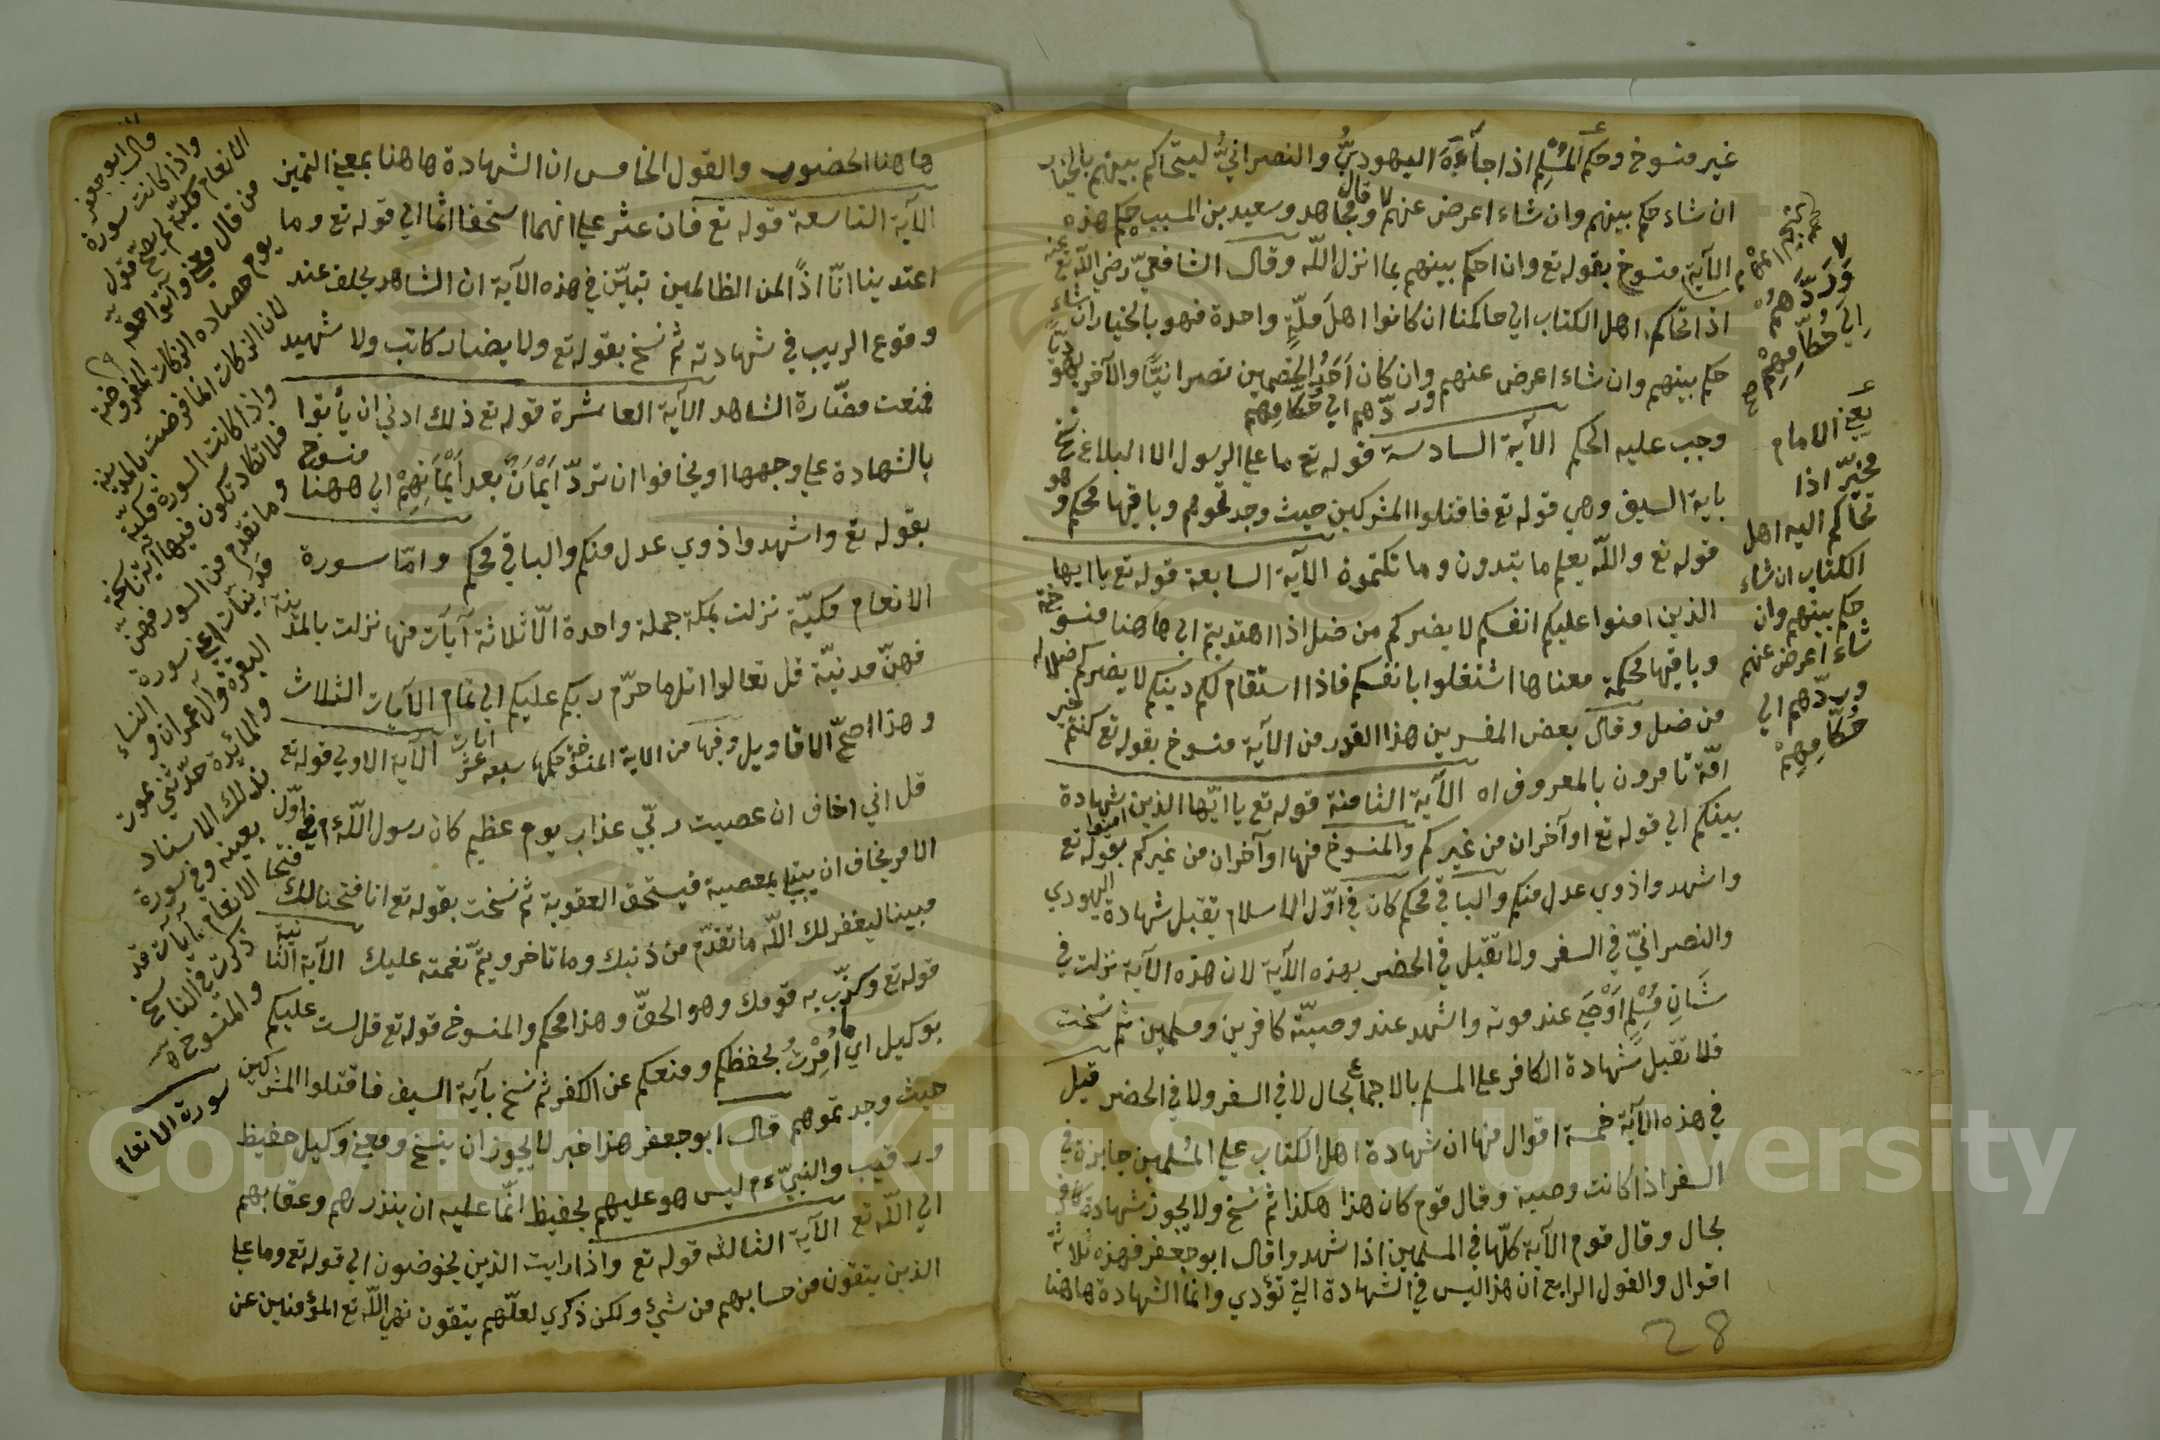 غير منسوخ وحكم المسلم اذا جاءه اليهودي والنصراني ليتحاكم بينهم بالخيار
ان شاء حكم بينهم وان شاء اعرض عنهم لا وقال مجاهد وسعيد بن المسيب حكم هذه
الآية منسوخ بقوله تع وان احكم بينهم بما انزل اللّه وقال الشافعيّ رضي اللّه تع عنه
اذا تحاكم اهل الكتاب الي حاكمنا ان كانوا اهل ملّةٍ واحدة فهو بالخيار ان شاء
حكم بينهم وان شاء اعرض عنهم وان كان أحدُ الخصمين نصرانيًّا والآخر يهوديًّا
او ردّهم الي حكامهم
وجب عليه الحكم الآية السادسة قوله تع ما علي الرسول الا البلاغ نسخ
باية السيف وهي قوله تع فاقتلوا المشركين حيث وجدتموهم وباقيها محكم وهو
قوله تع واللّه يعلم ما تبدون وما تكتمون الآية السابعة قوله تع يا ايها
الذين امنوا عليكم انفسكم لا يضركم من ضل اذا اهتديتم الي هاهنا منسوخة
وباقيها محكمة معناها اشتغلوا بانفسكم فاذا استقام لكم دينكم لا يضركم ضلاله
من ضل وقال بعض المفسرين هذا القدر من الآية منسوخ بقوله تع كنتم خير
امّة تامرون بالمعروف اه الآية الثامنة قوله تع يا ايّها الذين امنوا شهادة
بينكم الي قوله تع او آخران من غيركم والمنسوخ منها او آخران من غيركم بقوله تع
واشهدوا ذوي عدل منكم والباقي محكم كان في اوّل الاسلام يقبل شهادة اليهودي
والنصرانيّ في السفر ولا تقبل في الحضر بهذه الآية لان هذه الآية نزلت في
شَانِ مُسْلِمٍ أوْصَي عند موته واشهد عند وصيّته كافرين ومسلمين ثم نسخت
فلا تقبل شهادة الكافر علي المسلم بالاجماع بحال لا في السفر ولا في الحضر قيل
في هذه الآية خمسة اقوال منها ان شهادة اهل الكتاب علي المُسلمين جايزة في
السفر اذا كانت وصية وقال قوم كان هذا هكذا ثم نسخ ولا يجوز شهادة كافر
بحال وقال قوم الآية كلّها في المسلمين اذا شهدوا قال ابو جعفر فهذه ثلاثة
اقوال والقول الرابع ان هذا ليس في الشهادة التي تؤدي وانما الشهادة هاهنا
28
وَرَدَّهُمْ
اِلي حُكّامِهِمْ
يعني الامام
مخيّر اذا
تحاكم اليه اهل
الكتاب ان شاء
حكم بينهم وان
شاء اعرض عنهم
وردّهم الي
حُكّامِهِمْ
هاهنا الحضور والقول الخامس ان الشهادة هاهنا بمعني اليمين
الآية التاسعة قوله تع فان عثر علي انهما استحقا اثما الي قوله تع وما
اعتدينا انّا اذًا لمن الظالمين تبيّن في هذه الآية ان الشاهد يحلف عند
وقوع الريب في شهادته ثم نسخ بقوله تع ولا يضار كاتب ولا شهيد
فمنعت مضّارة الشاهد الآية العاشرة قوله تع ذلك ادني ان يأتوا
بالشهادة علي وجهها او يخافوا ان تردّ اَيْمَانٌ بعد اَيْمَانِهِمْ الي ههنا منسوخ
بقوله تع واشهدوا ذوي عدل منكم والباقي محكم وامّا سورة
الانعام مكيّة نزلت بمكة جملة واحدة الّا ثلاثة آيات منها نزلت بالمدينة
فهنّ مدنيّة قل تعالوا اتل ما حرّم ربكم عليكم الي تمام الآيات الثلاث
وهذا اصحّ الاقاويل وفيها من الاية المنسوخة حكمها سبعه عشر ايات الآية الاولي قوله تع
قل اني اخاف ان عصيت ربّي عذاب يوم عظيم كان رسول اللّه ء م في اوّل
الامر يخاف ان يبتلي بمعصية فيستحق العقوبة ثم نسخت بقوله تع انا فتحنا لك فتحا
مبينا ليغفر لك اللّه ما تقدّم من ذنبك وما تاخر ويتمّ نعمته عليك الآية الثانية
قوله تع وكذّب به قومك وهو الحقّ وهذا محكم والمنسوخ قوله تع قل لست عليكم
بوكيل اي ما أُمِرْتُ بحفظكم ومنعكم عن الكفر ثم نسخ بآية السيف فاقتلوا المشركين
حيث وجدتموهم قال ابو جعفر هذا خبر لا يجوز ان ينسخ ومعني وكيل حفيظ
ورقيب والنبيّ ء م ليس هو عليهم بحفيظ انّما عليه ان ينذرهم وعقابهم
الي اللّه تع الآية الثالثه قوله تع واذا رايت الذين يخوضون الي قوله تع وما علي
الذين يتقون من حسابهم من شيء ولكن ذكري لعلّهم يتقون نهي اللّه تع المؤمنين عن
قال ابو جعفر
واذا كانت سورة
الانعام مكيّة لم يصّح قول
من قال معني وآتوا حقه
يوم حصاده الزكات المفروضة
لان الزكات انما فرضت بالمدينة
واذا كانت السورة مكية
فلا تكاد تكون فيها آية ناسخة
وما تقدم من السور فهنّ
مدنيّات اعني سورة
البقرة وآل عمران والنساء
والمائدة حدّثني يموت
بذلك الاسناد
بعينه وفي سورة
الانعام آيات قد
ذكرت في الناسخ
والمنسوخ
سورة الانعام
Copyright © King Saud University